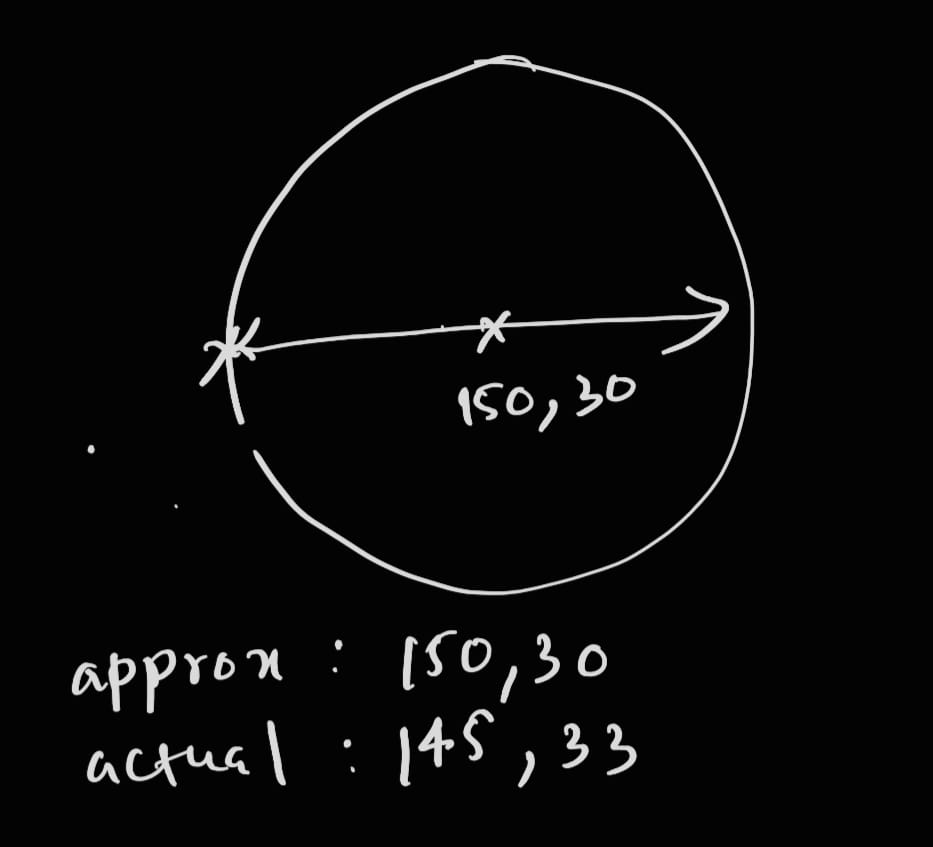 150,30
approx : 150,30
actual : 145,33